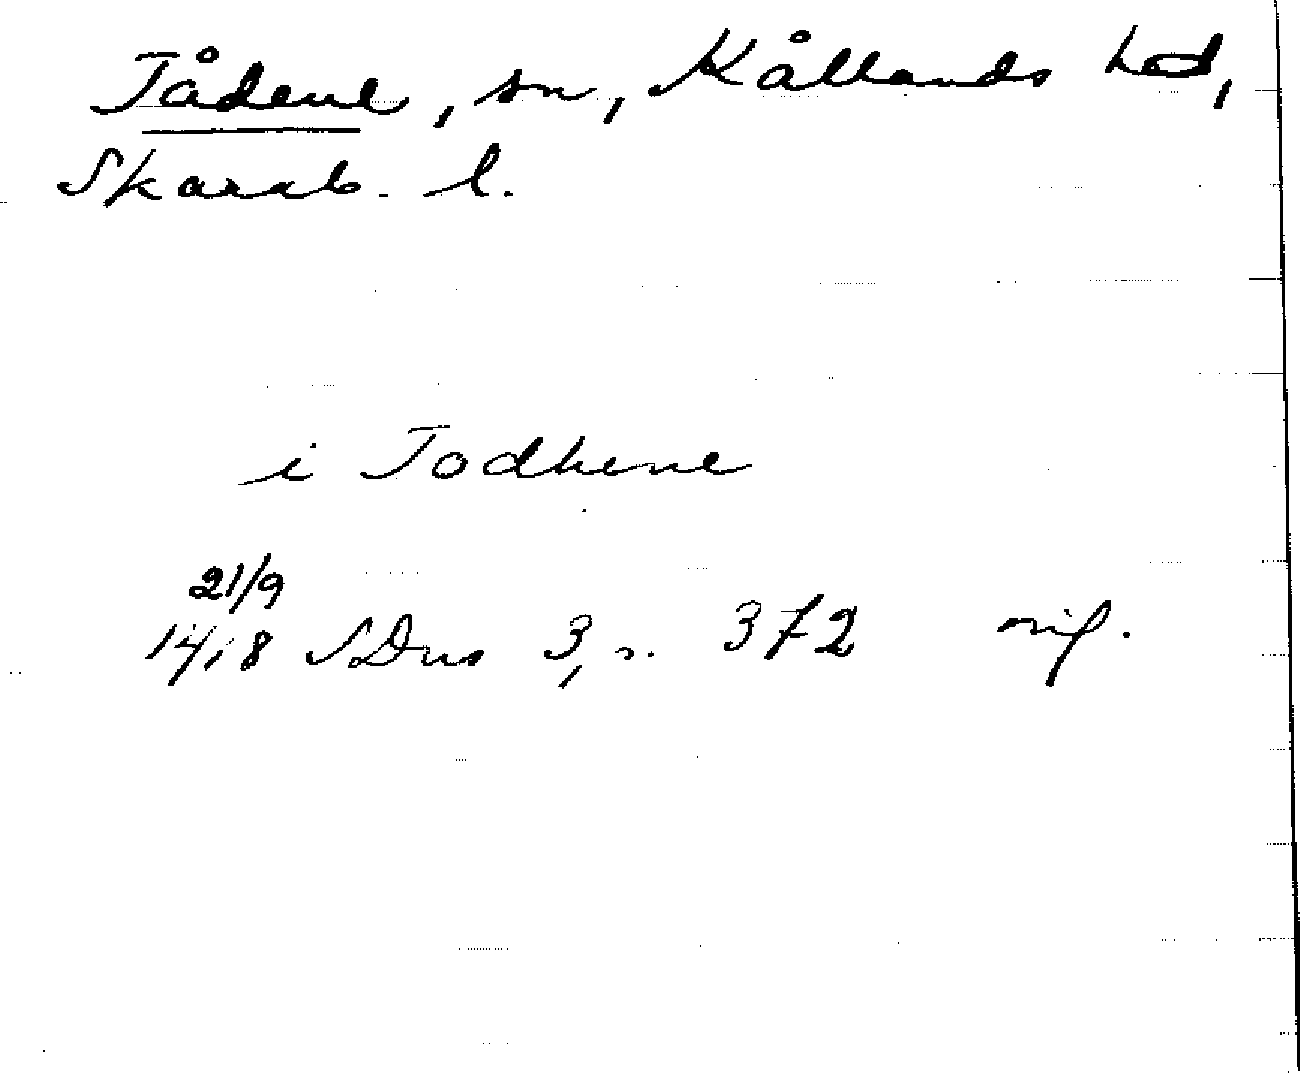 Tådene, sn, Kållands hd,
Skarab. l.
i Todhene
21/9
1418 SDns 3, s. 372 orig.